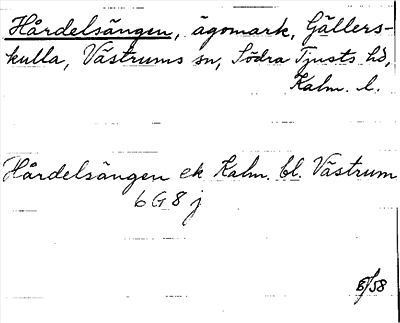 Hårdelsängen, ägomark, Gällers-
kulla, Västrums sn, Södra Tjusts hd,
Kalm. l.
Hårdelsängen ek Kalm. bl. Västrum
6G8j